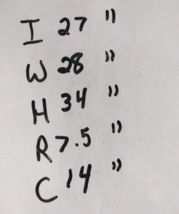 I 27 "
W 28 "
H 34 "
R 7.5 "
C 14 "